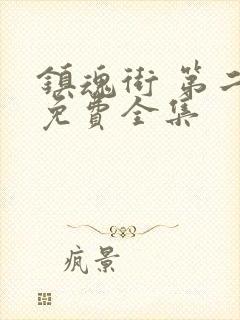 鎮魂街 第二
免費全集
疯景